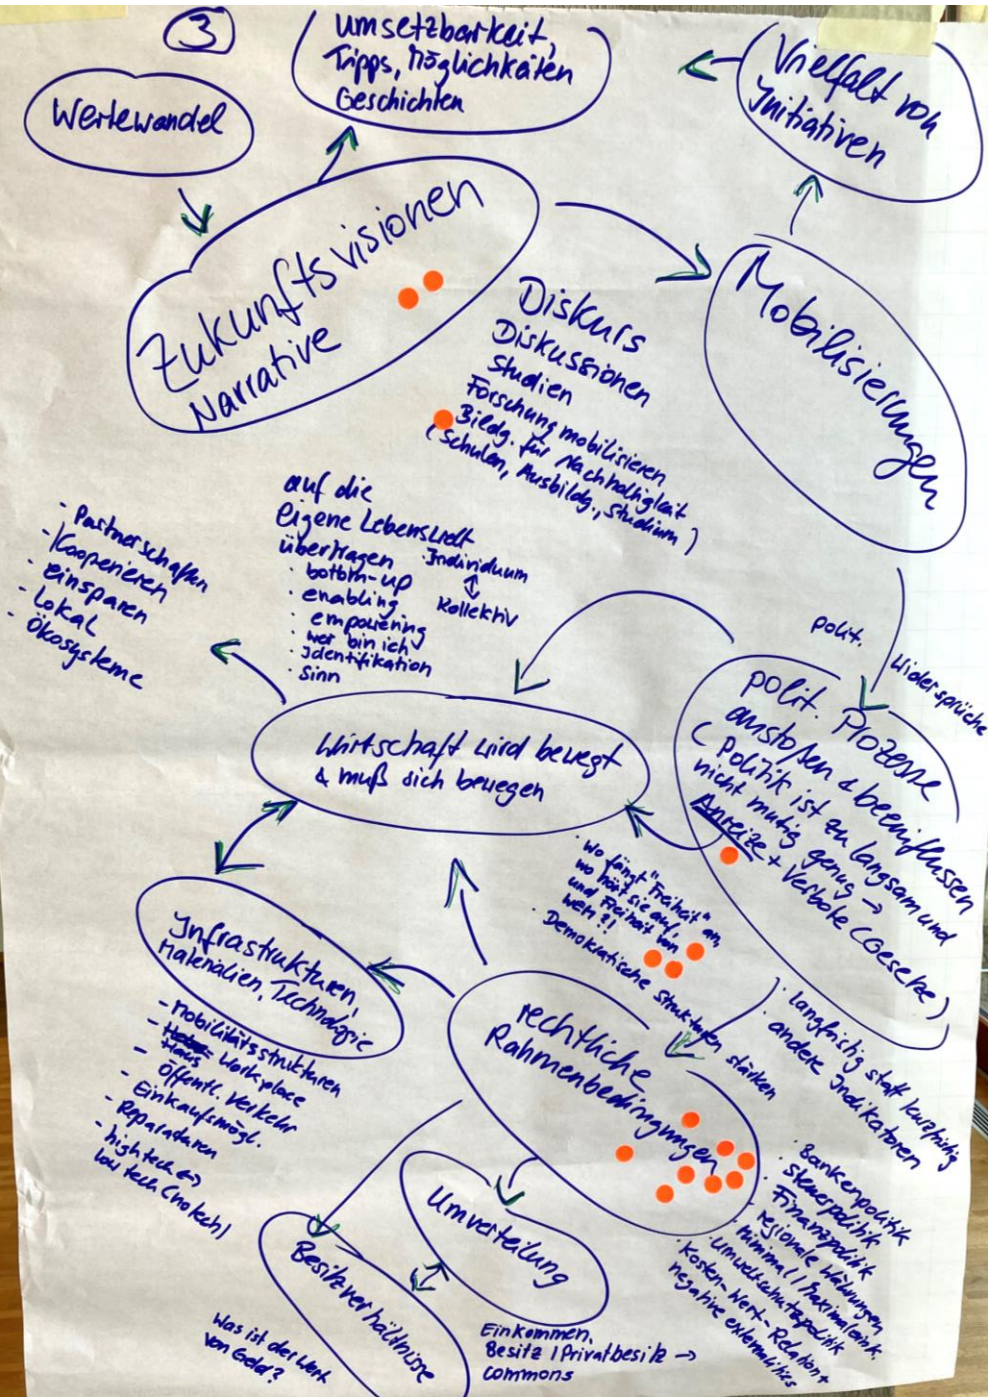 3
Umsetzbarkeit,
Tipps, Möglichkeiten
Geschichten
Vielfalt von
Initiativen
Wertewandel
Zukunftsvisionen
Narrative
Mobilisierungen
Diskurs
Diskussionen
Studien
Forschung mobilisieren
Bildg. für Nachhaltigkeit
(Schulen, Ausbildg., Studium)
auf die
eigene Lebenswelt
übertragen
· bottom-up
· enabling
· empowering
· wer bin ich
· Identifikation
· Sinn
Individuum
Kollektiv
- Partnerschaften
- Kooperieren
- einsparen
- Lokal
- Ökosysteme
polit.
Widersprüche
polit. Prozesse
anstoßen & beeinflussen
(Politik ist zu langsam und
nicht mutig genug →
Anreize + Verbote (Gesetze)
Wirtschaft wird bewegt
& muß sich bewegen
· wo fängt "Freiheit" an,
wo hört sie auf,
und Freiheit von
wem?!
· Demokratische Strukturen stärken
· langfristig statt kurzfristig
· andere Indikatoren
Infrastrukturen,
Materialien, Technologie
- Mobilitätsstrukturen
- Workplace
- Öffentl. Verkehr
- Einkaufsmögl.
- Reparaturen
- hightech ↔
low tech (no tech)
rechtliche
Rahmenbedingungen
· Bankenpolitik
· Steuerpolitik
· Finanzpolitik
· regionale Währungen
· minimal / Maximaleink.
· Umweltschutzpolitik
· Kosten-Wert-Relation +
negative externalities
Umverteilung
Besitzverhältnisse
Was ist der Wert
von Geld?
Einkommen,
Besitz / Privatbesitz →
commons